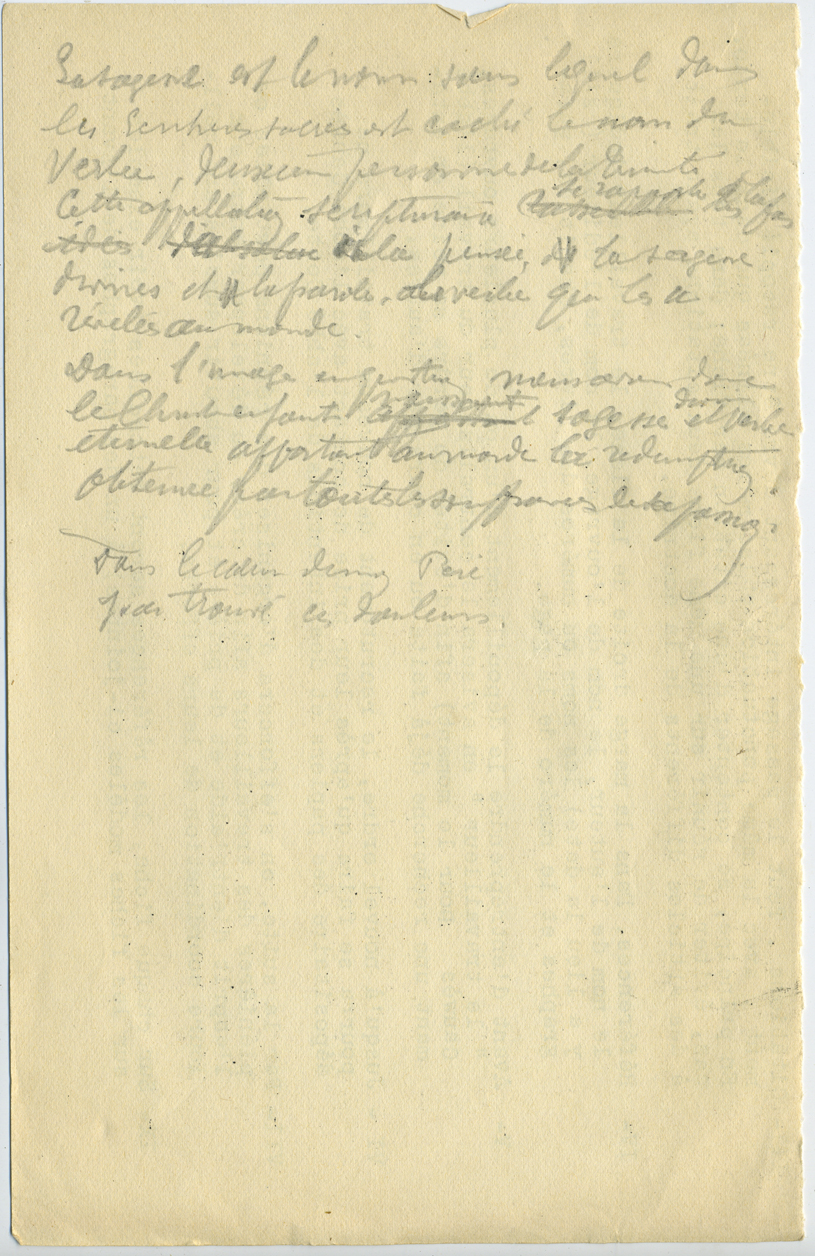 La sagesse est le nom sous lequel dans
les Ecritures sacrées est caché le nom du
Verbe, deuxième personne de la Trinité
Cette appellation scripturaire se rapporte à la fois
à la pensée, à la sagesse
divines et à la parole, au verbe qui les a
révélés au monde.
Dans l'image en question nous avons donc
le Christ enfant sagesse et verbe divin
éternelle apportant au monde la rédemption
obtenue par toutes les souffrances de sa passion.
Dans le cœur de mon Père
j'ai trouvé ces douleurs.